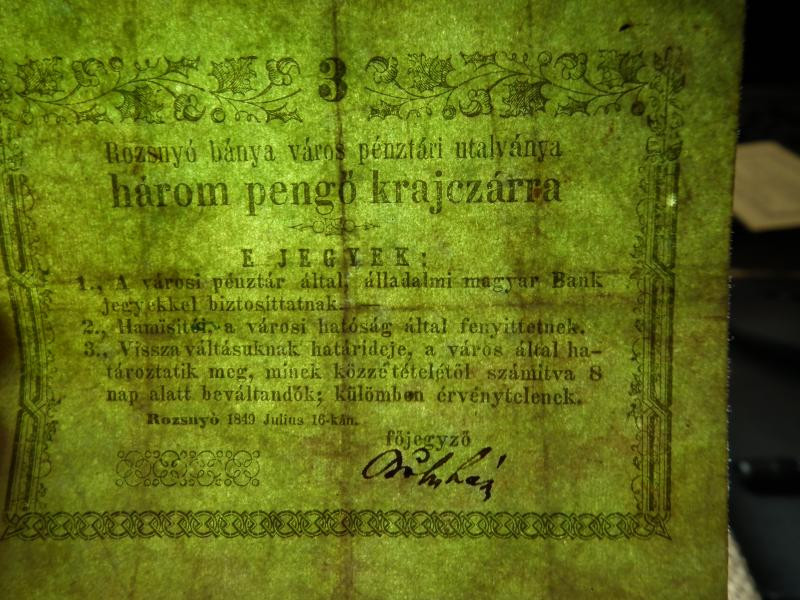 3
Rozsnyó bánya város pénztári utalványa
három pengő krajczárra
E JEGYEK:
1., A városi pénztár által, álladalmi magyar Bank
jegyekkel biztosíttatnak.—
2., Hamisitói, a városi hatóság által fenyittetnek.
3., Vissza váltásuknak határideje, a város által ha-
tároztatik meg, minek közzé tételétől számitva 8
nap alatt beváltandók; külömben érvénytelenek.
Rozsnyó 1849 Julius 16-kán.
főjegyző